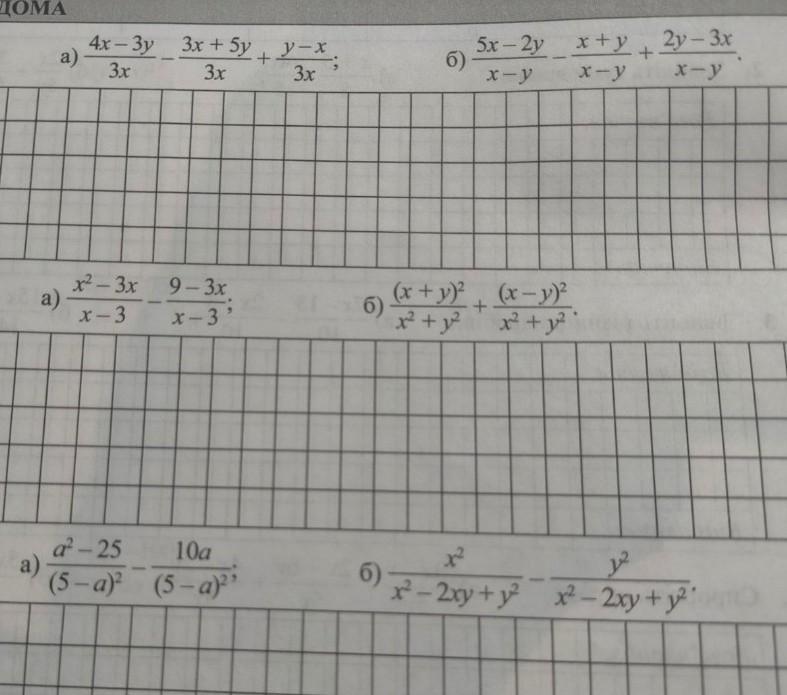 ДОМА
а) (4x – 3y)/(3x) – (3x + 5y)/(3x) + (y – x)/(3x); б) (5x – 2y)/(x – y) – (x + y)/(x – y) + (2y – 3x)/(x – y).
а) (x² – 3x)/(x – 3) – (9 – 3x)/(x – 3); б) (x + y)²/(x² + y²) + (x – y)²/(x² + y²).
а) (a² – 25)/(5 – a)² – 10a/(5 – a)²; б) x²/(x² – 2xy + y²) – y²/(x² – 2xy + y²).